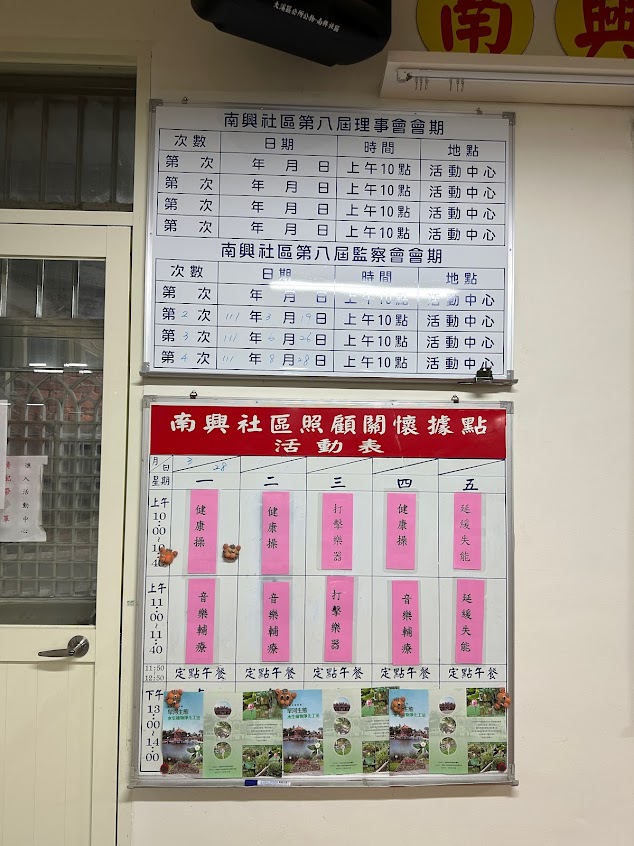 大溪區公所公物-南興社區
南興
南興社區第八屆理事會會期
次數 日期 時間 地點
第 次 年 月 日 上午10點 活動中心
第 次 年 月 日 上午10點 活動中心
第 次 年 月 日 上午10點 活動中心
第 次 年 月 日 上午10點 活動中心
南興社區第八屆監察會會期
次數 日期 時間 地點
第 次 年 月 日 上午10點 活動中心
第2次 111年3月19日 上午10點 活動中心
第3次 111年6月26日 上午10點 活動中心
第4次 111年8月28日 上午10點 活動中心
南興社區照顧關懷據點
活動表
月/日 3/28
星期 一 二 三 四 五
上午10:00~10:40 健康操 健康操 打擊樂器 健康操 延緩失能
上午11:00~11:40 音樂輔療 音樂輔療 打擊樂器 音樂輔療 延緩失能
11:50 12:50 定點午餐 定點午餐 定點午餐 定點午餐 定點午餐
下午13:00~14:00
埤河生態 水生植物淨化工法
埤河生態 水生植物淨化工法
埤河生態 水生植物淨化工法
進入活動中心